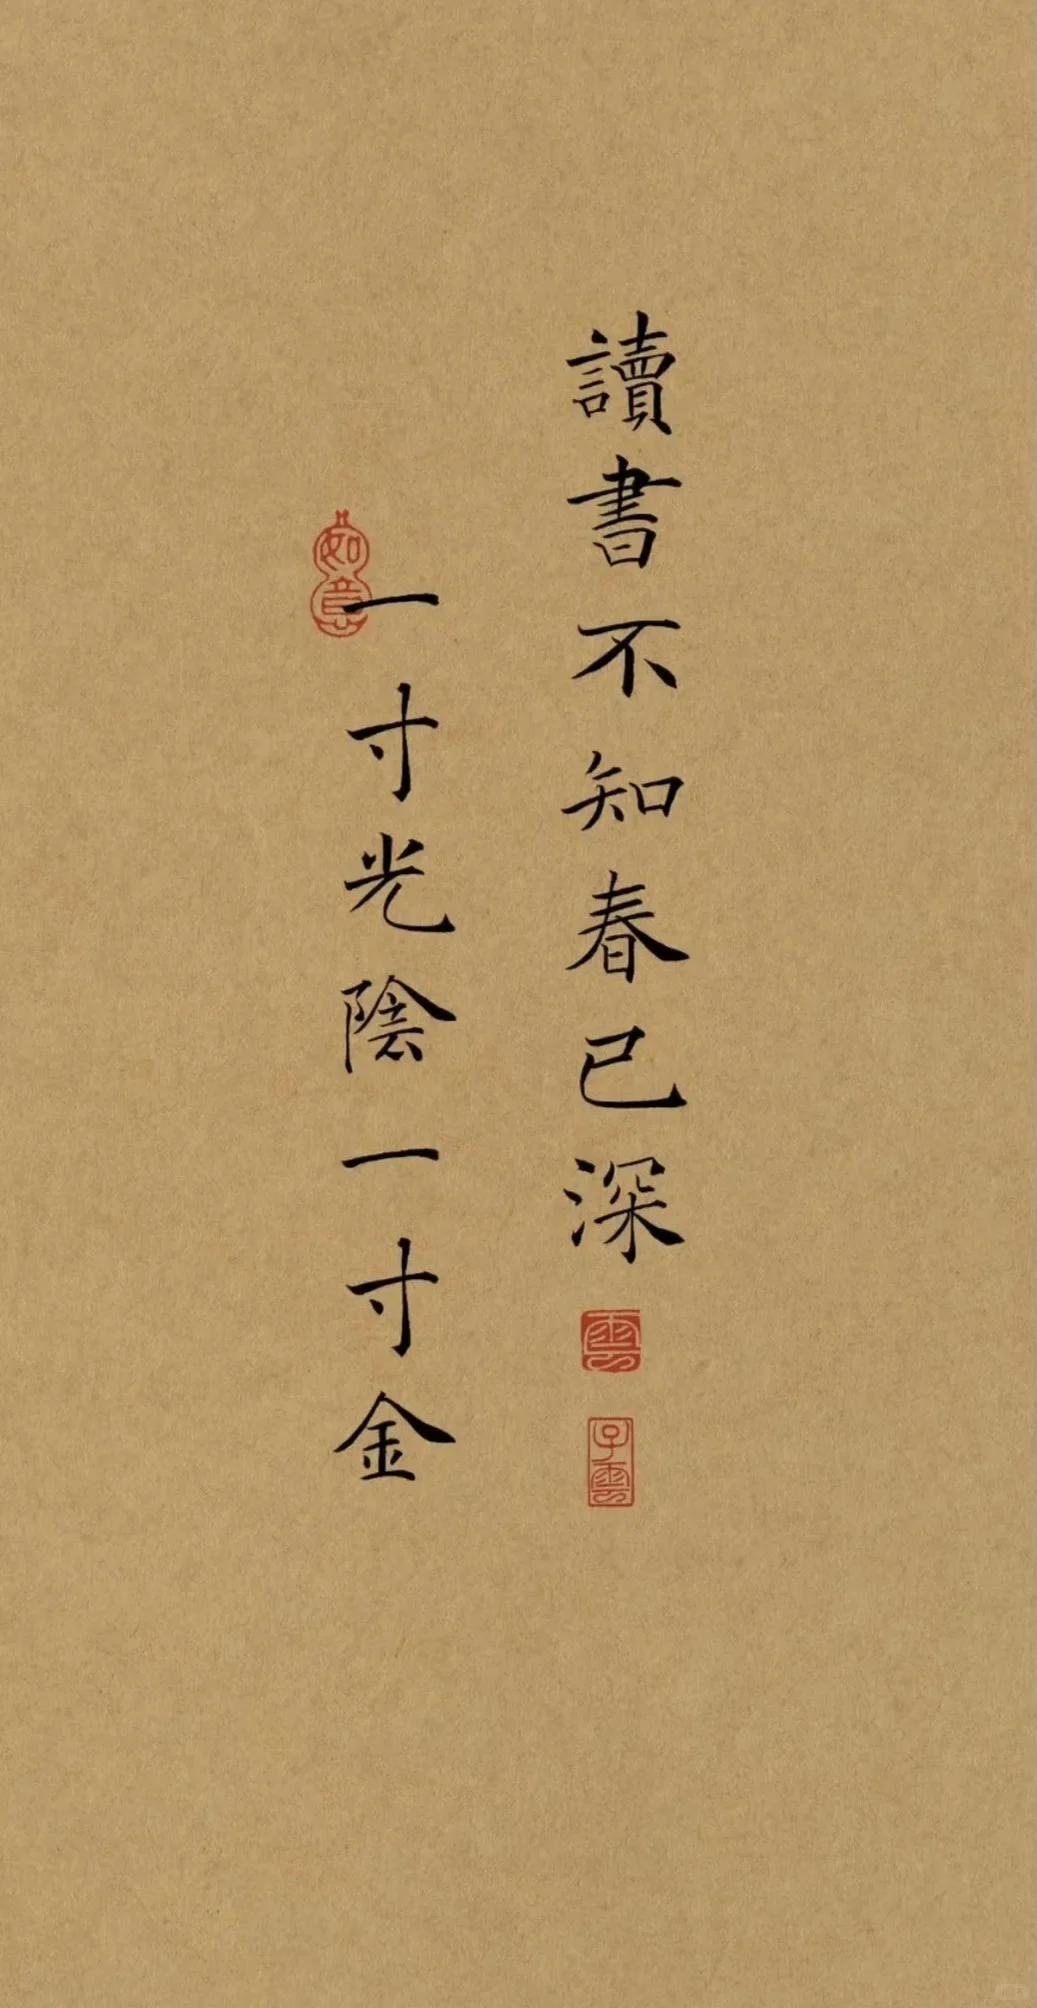 讀書不知春已深
雲
子雲
一寸光陰一寸金
如意